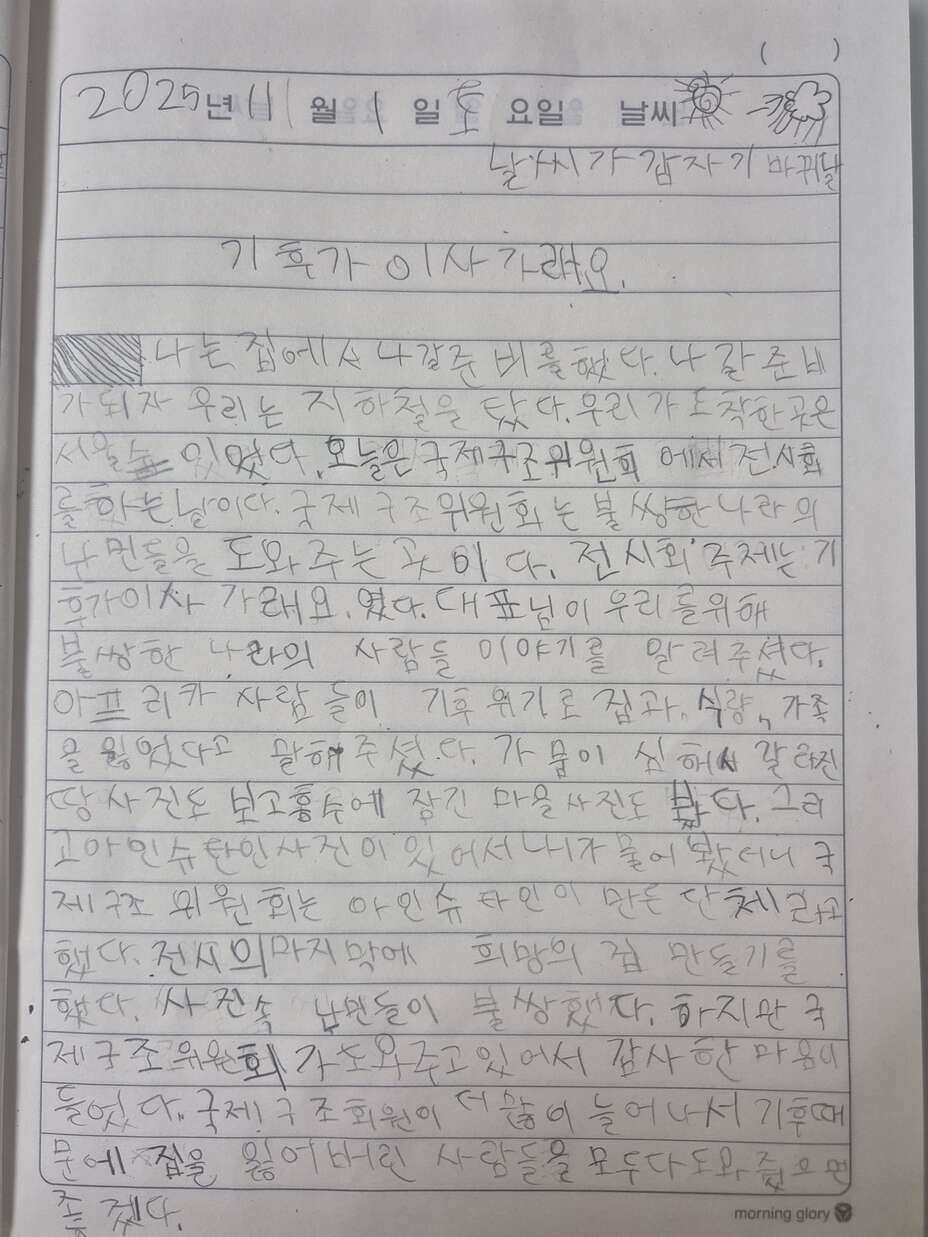 ( )
2025년 11월 1일 토요일 날씨
날씨가 갑자기 바뀌날
기후가 이사가래요.
나는 집에서 나갈준비를했다. 나갈준비
가되자 우리는 지하철을 탔다. 우리가 도착한곳은
서울숲 있었다. 오늘은 국제구조위원회 에서 전시회
를하는날이다. 국제구조위원회는 불쌍한나라의
난민들을 도와주는 곳이다. 전시회 주제는 기
후가이사 가래요. 였다. 대표님이 우리를위해
불쌍한 나라의 사람들 이야기를 알려주셨다.
아프리카 사람들이 기후위기로 집과, 식량, 가족
을 잃었다고 말해주셨다. 가뭄이 심해서 갈라진
땅사진도 보고홍수에 잠긴 마을사진도 봤다. 그리
고아인슈타인사진이 있어서 내가 물어봤더니 국
제구조 위원회는 아인슈타인이 만든 단체라고
했다. 전시의마지막에 희망의 집 만들기를
했다. 사진속 난민들이 불쌍했다. 하지만 국
제구조위원회가도와주고있어서 감사한마음이
들었다. 국제구조회원이 더많이 늘어나서 기후때
문에 집을 잃어버린 사람들을 모두다도와줬으면
좋겠다.
morning glory